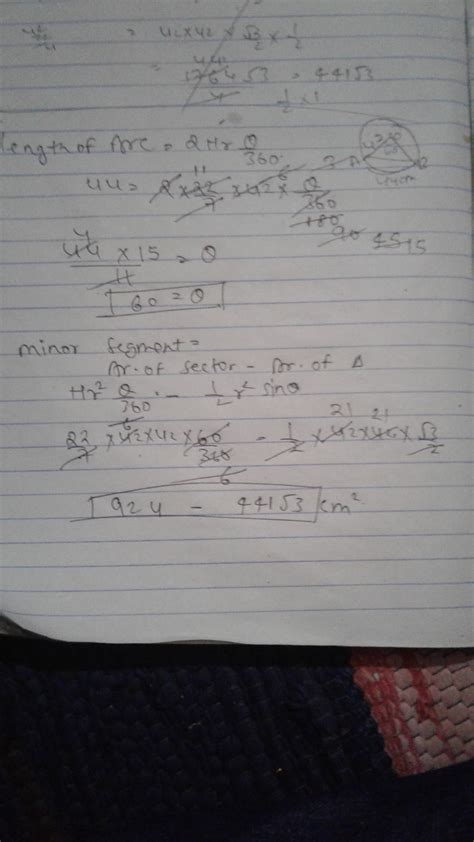 = 42 × 42 × √3/2 × 1/2
= 1764√3/4 = 441√3
1/2 × 1
length of Arc = 2Πr θ/360
44 = 2 × 22/7 × 42 × θ/360
180
90 45 15
44 × 15 / 11 = θ
60 = θ
minor segment =
Ar. of sector - Ar. of Δ
Πr² θ/360 - 1/2 r² sinθ
22/7 × 42 × 42 × 60/360 - 1/2 × 42 × 42 × √3/2
21 21
6
924 - 441√3 cm²